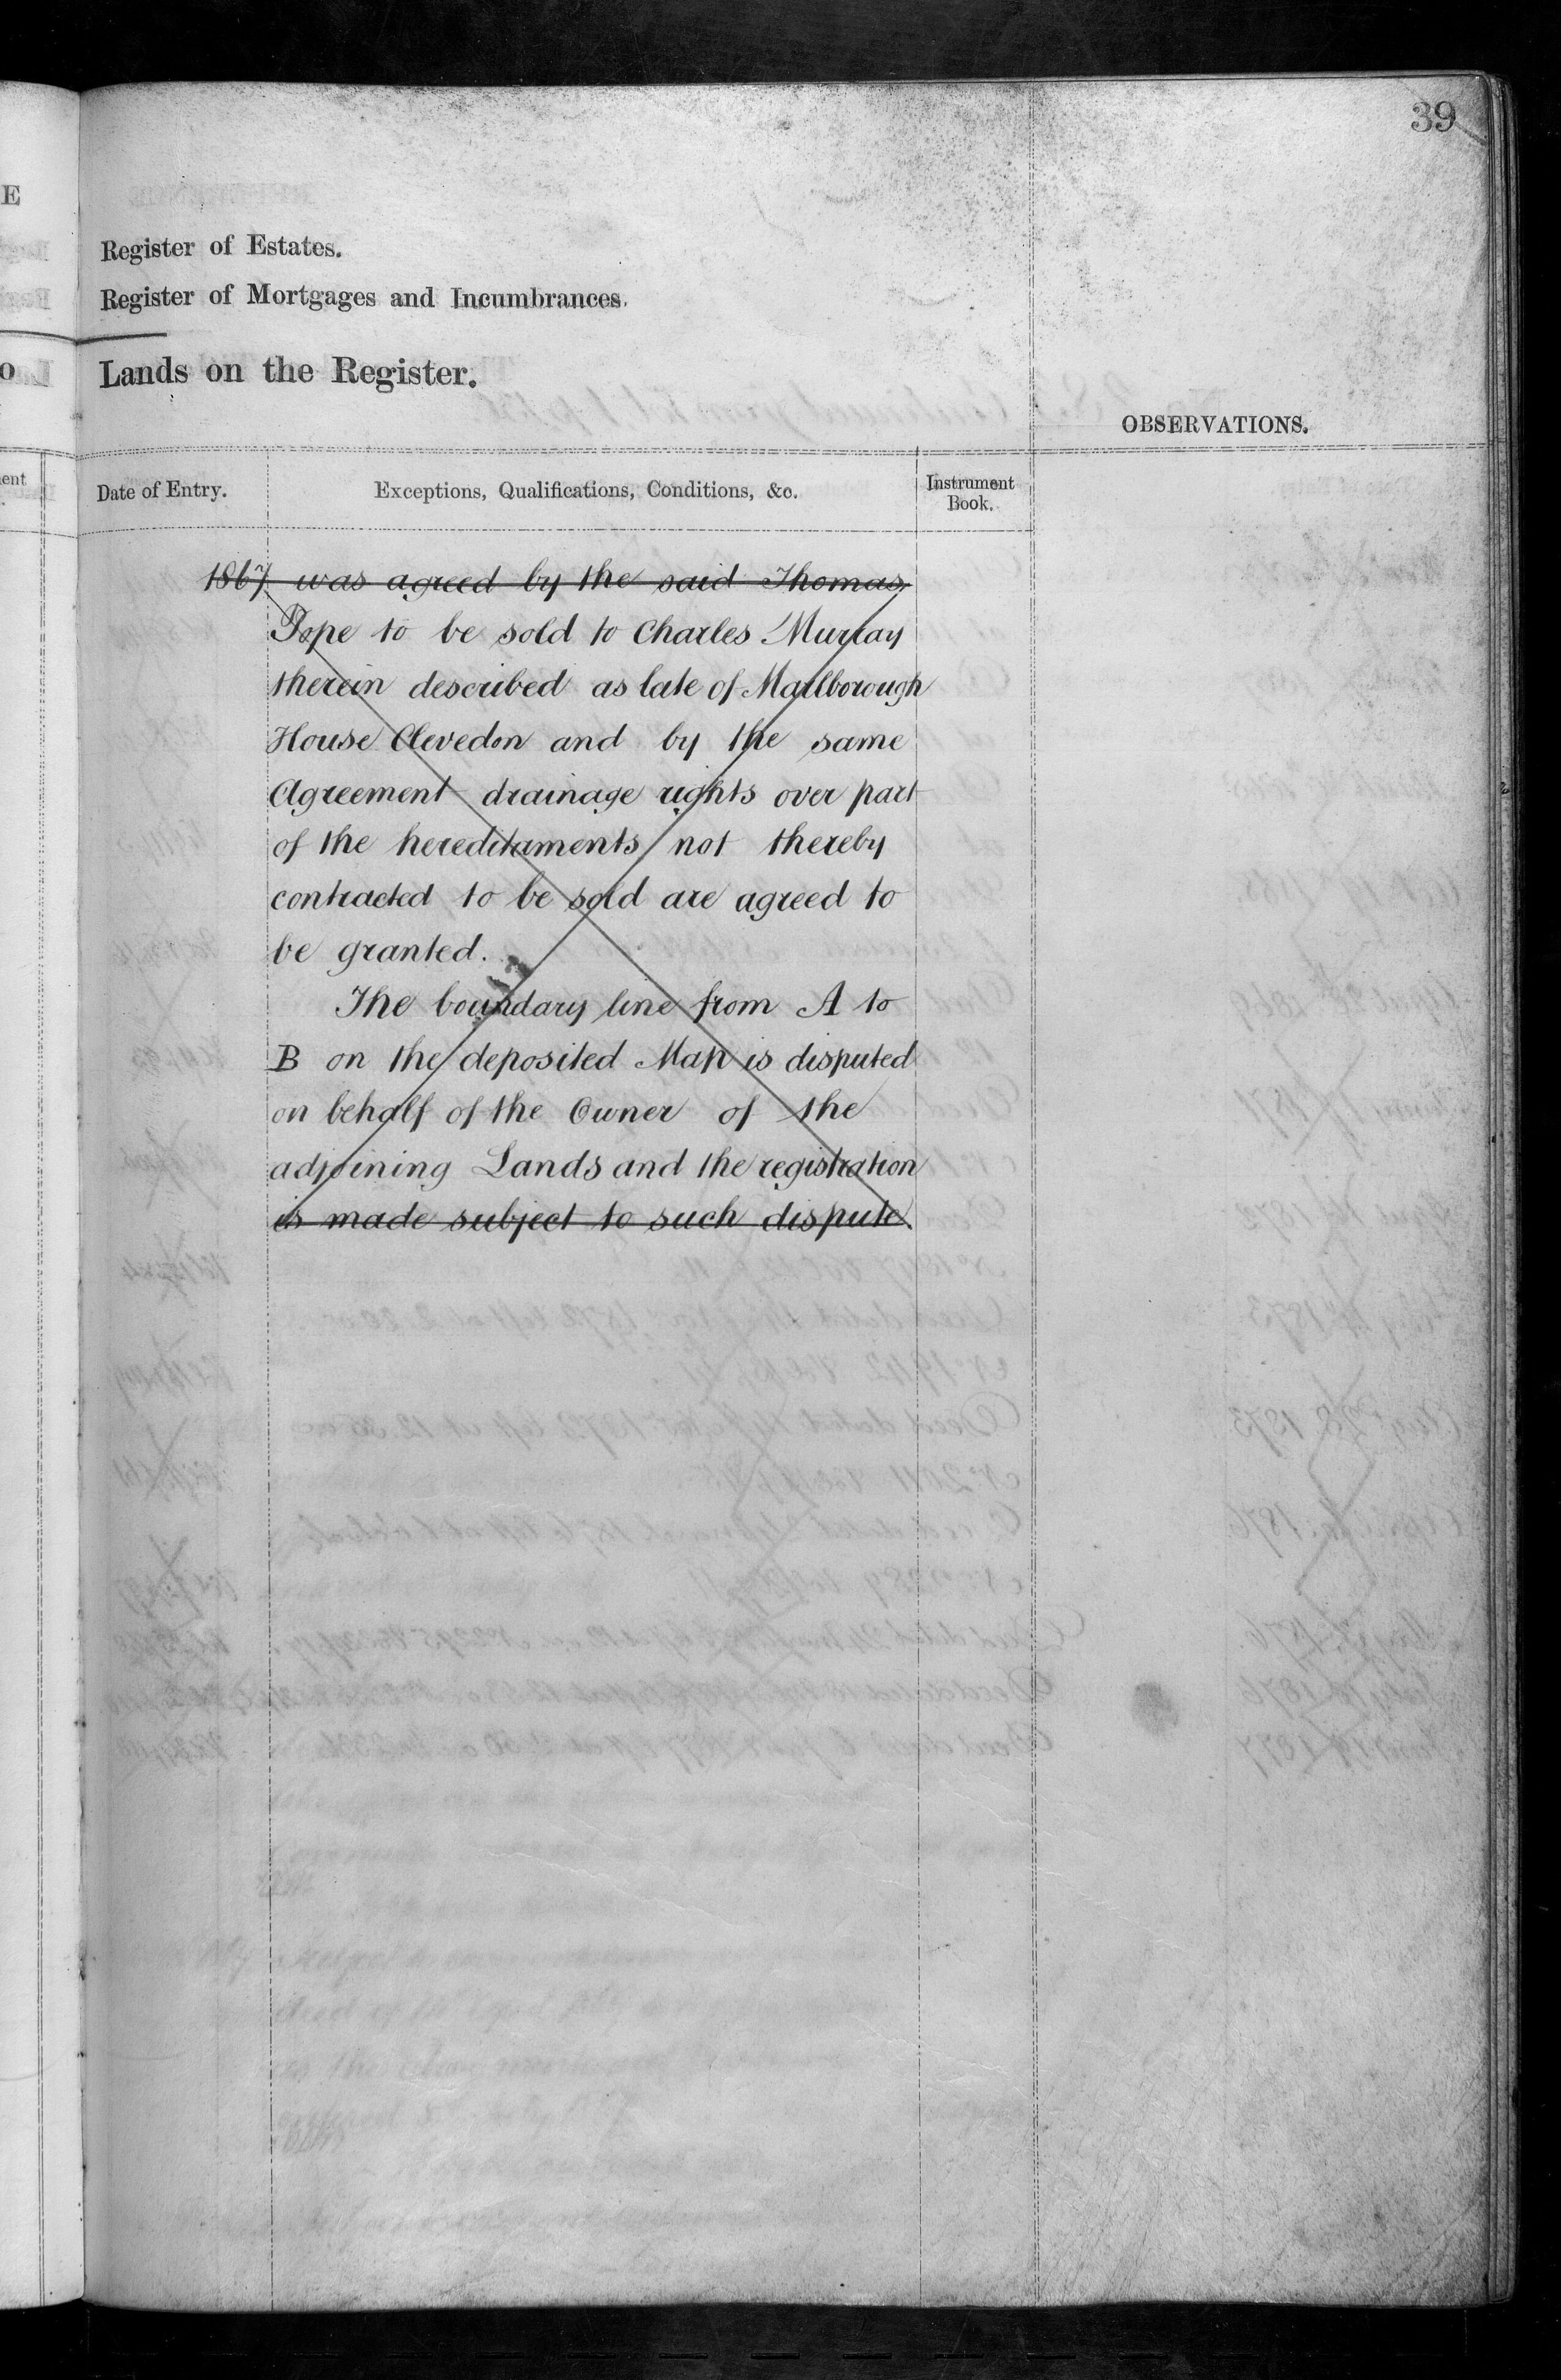 39
E
Register of Estates.
Register of Mortgages and Incumbrances.
O
Lands on the Register.
OBSERVATIONS.
ent
Date of Entry.
Exceptions, Qualifications, Conditions, &c.
Instrument
Book.
1867 was agreed by the said Thomas
Pope to be sold to Charles Murray
therein described as late of Marlborough
House Clevedon and by the same
Agreement drainage rights over part
of the hereditaments not thereby
contracted to be sold are agreed to
be granted.
The boundary line from A to
B on the deposited Map is disputed
on behalf of the Owner of the
adjoining Lands and the registration
is made subject to such dispute.